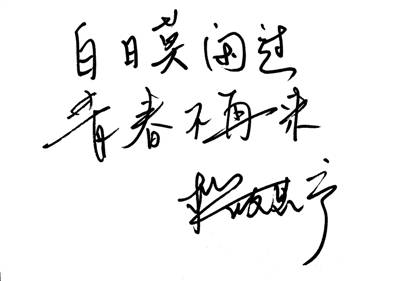 白日莫闲过
青春不再来